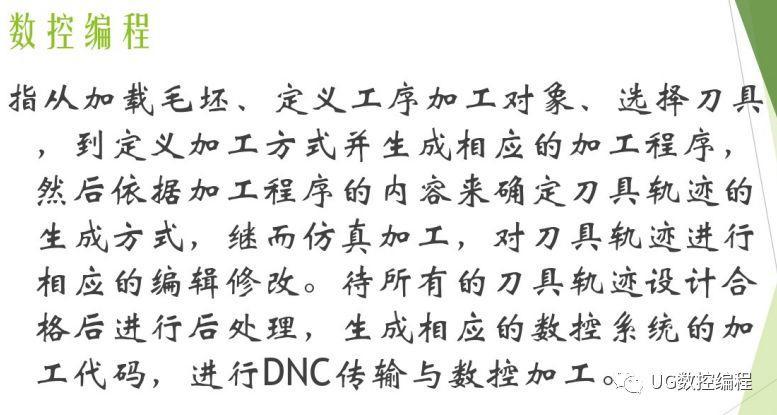 数控编程
指从加载毛坯、定义工序加工对象、选择刀具
，到定义加工方式并生成相应的加工程序，
然后依据加工程序的内容来确定刀具轨迹的
生成方式，继而仿真加工，对刀具轨迹进行
相应的编辑修改。待所有的刀具轨迹设计合
格后进行后处理，生成相应的数控系统的加
工代码，进行DNC传输与数控加工。
UG数控编程